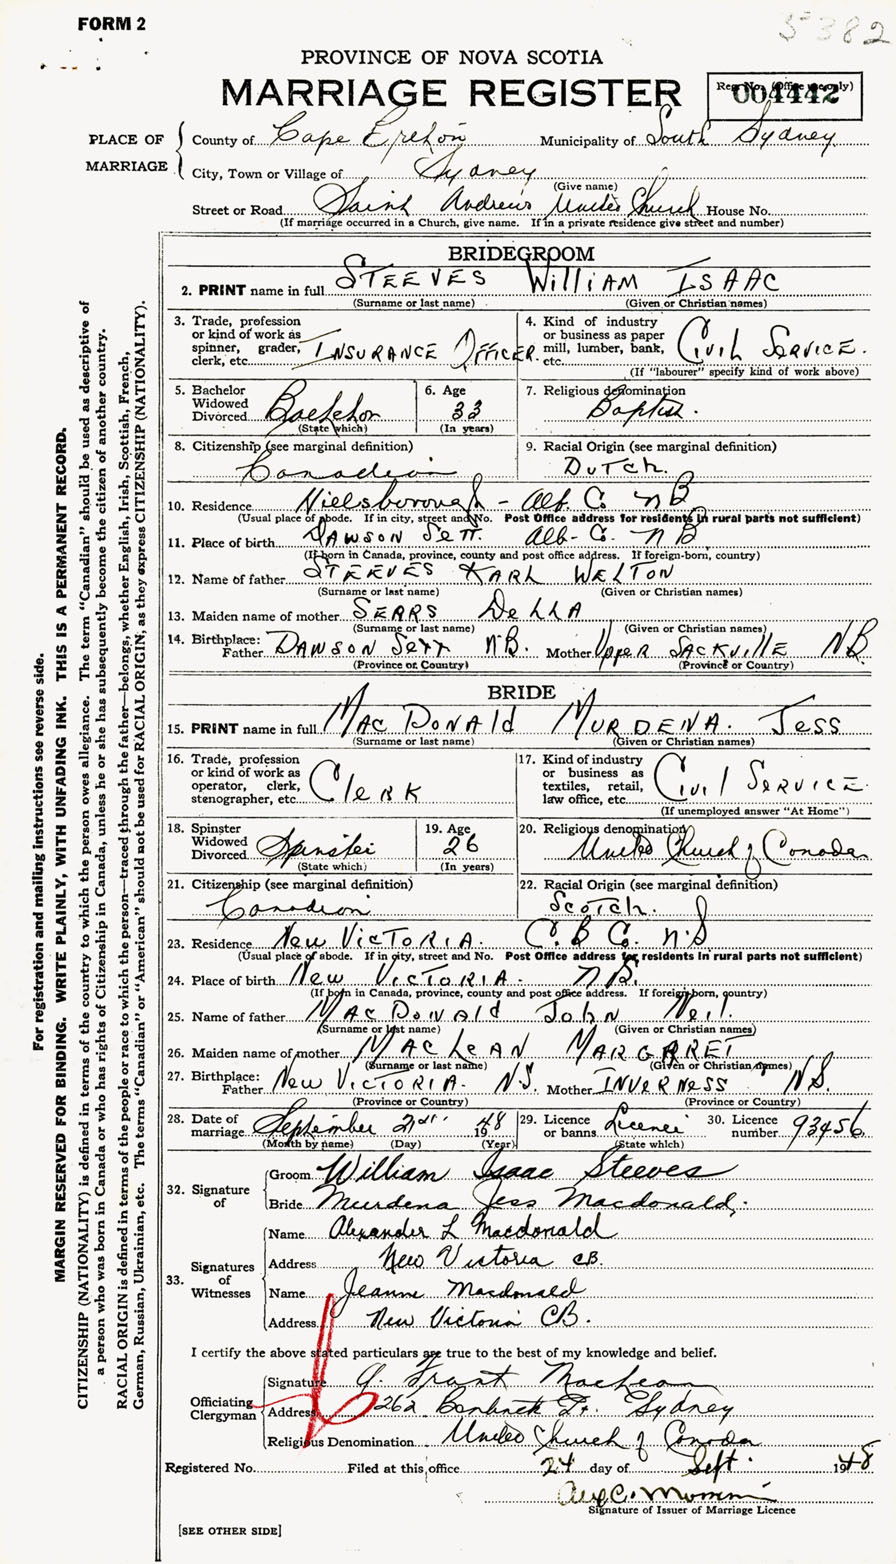 FORM 2
5382
PROVINCE OF NOVA SCOTIA
MARRIAGE REGISTER
Reg. No. (Office use only)
004442
PLACE OF MARRIAGE
County of Cape Breton Municipality of South Sydney
City, Town or Village of Sydney
(Give name)
Street or Road Saint Andrews United Church House No.
(If marriage occurred in a Church, give name. If in a private residence give street and number)
BRIDEGROOM
2. PRINT name in full STEEVES WilliAM ISAAC
(Surname or last name) (Given or Christian names)
3. Trade, profession or kind of work as spinner, grader, clerk, etc. INSURANCE OFFICER
4. Kind of industry or business as paper mill, lumber, bank, etc. Civil Service.
(If "labourer" specify kind of work above)
5. Bachelor Widowed Divorced Bachelor
(State which)
6. Age 33
(In years)
7. Religious denomination Baptist.
8. Citizenship (see marginal definition) Canadian
9. Racial Origin (see marginal definition) DUTCH.
10. Residence Hillsborough - Alb. Co. NB
(Usual place of abode. If in city, street and No. Post Office address for residents in rural parts not sufficient)
11. Place of birth DAWSON Sett. Alb- Co. NB
(If born in Canada, province, county and post office address. If foreign-born, country)
12. Name of father STEEVES KARL WELTON
(Surname or last name) (Given or Christian names)
13. Maiden name of mother SEARS DELLA
(Surname or last name) (Given or Christian names)
14. Birthplace: Father DAWSON Sett N.B. Mother Upper SACKVILLE N.B.
(Province or Country) (Province or Country)
BRIDE
15. PRINT name in full MACDONAld MURDENA. Jess
(Surname or last name) (Given or Christian names)
16. Trade, profession or kind of work as operator, clerk, stenographer, etc. Clerk
17. Kind of industry or business as textiles, retail, law office, etc. Civil Service
(If unemployed answer "At Home")
18. Spinster Widowed Divorced Spinster
(State which)
19. Age 26
(In years)
20. Religious denomination United Church of Canada
21. Citizenship (see marginal definition) Canadian
22. Racial Origin (see marginal definition) Scotch.
23. Residence New VICTORIA. C.B Co. N.S
(Usual place of abode. If in city, street and No. Post Office address for residents in rural parts not sufficient)
24. Place of birth New VICTORIA.
(If born in Canada, province, county and post office address. If foreign-born, country)
25. Name of father MACDONAld John Neil.
(Surname or last name) (Given or Christian names)
26. Maiden name of mother MACLEAN MARGARET
(Surname or last name) (Given or Christian names)
27. Birthplace: Father New VICTORIA. N.S. Mother INVERNESS N.S.
(Province or Country) (Province or Country)
28. Date of marriage September 1948
(Month by name) (Day) (Year)
29. Licence or banns Licence
(State which)
30. Licence number 93456
32. Signature of
Groom William Isaac Steeves
Bride Murdena Jess Macdonald.
33. Signatures of Witnesses
Name Alexander L Macdonald
Address New Victoria CB.
Name Jeanne Macdonald
Address New Victoria CB.
I certify the above stated particulars are true to the best of my knowledge and belief.
Officiating Clergyman
Signature Grant MacLean
Address 262 Sydney
Religious Denomination United Church of Canada
Registered No. Filed at this office 24 day of Sept. 1948
Signature of Issuer of Marriage Licence
[SEE OTHER SIDE]
For registration and mailing instructions see reverse side.
MARGIN RESERVED FOR BINDING. WRITE PLAINLY, WITH UNFADING INK. THIS IS A PERMANENT RECORD.
CITIZENSHIP (NATIONALITY) is defined in terms of the country to which the person owes allegiance. The term "Canadian" should be used as descriptive of
a person who was born in Canada or who has rights of Citizenship in Canada, unless he or she has subsequently become the citizen of another country.
RACIAL ORIGIN is defined in terms of the people or race to which the person—traced through the father—belongs, whether English, Irish, Scottish, French,
German, Russian, Ukrainian, etc. The terms "Canadian" or "American" should not be used for RACIAL ORIGIN, as they express CITIZENSHIP (NATIONALITY).